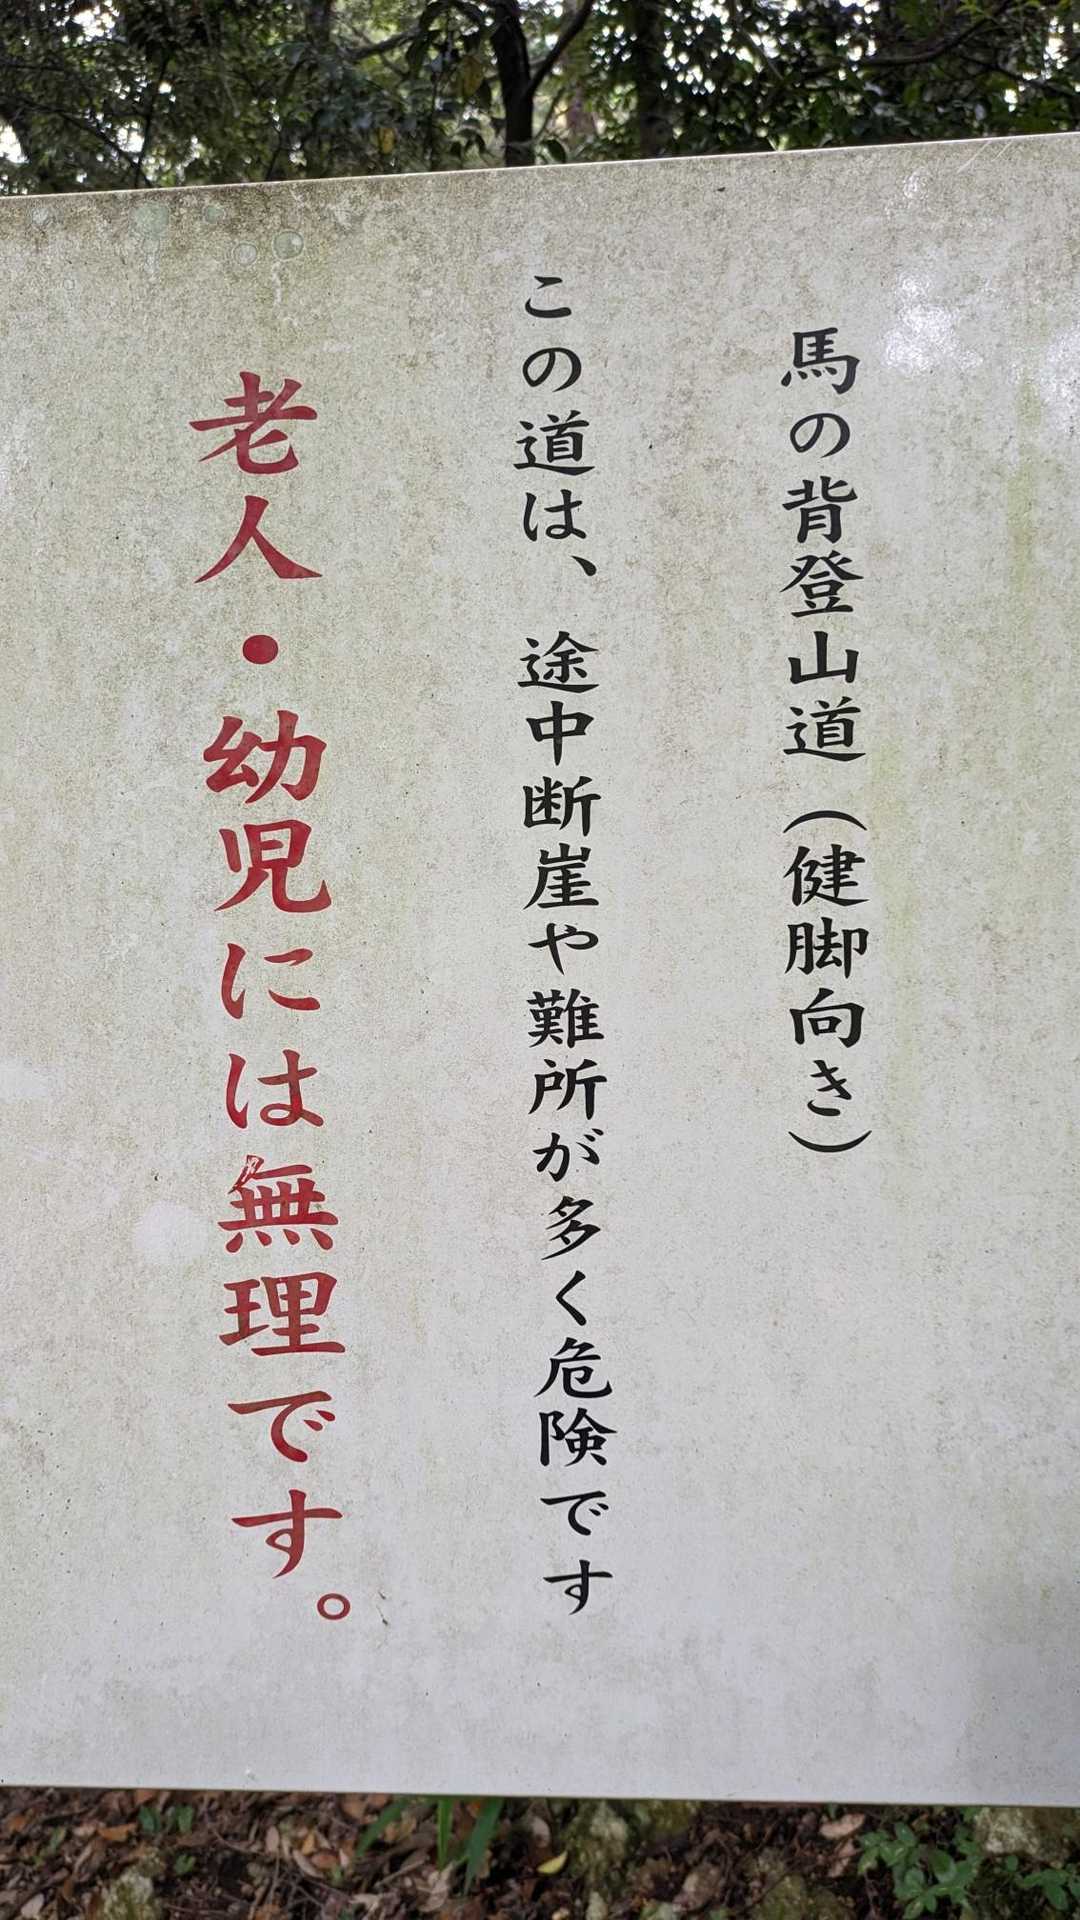 馬の背登山道(健脚向き)
この道は、途中断崖や難所が多く危険です
老人・幼児には無理です。